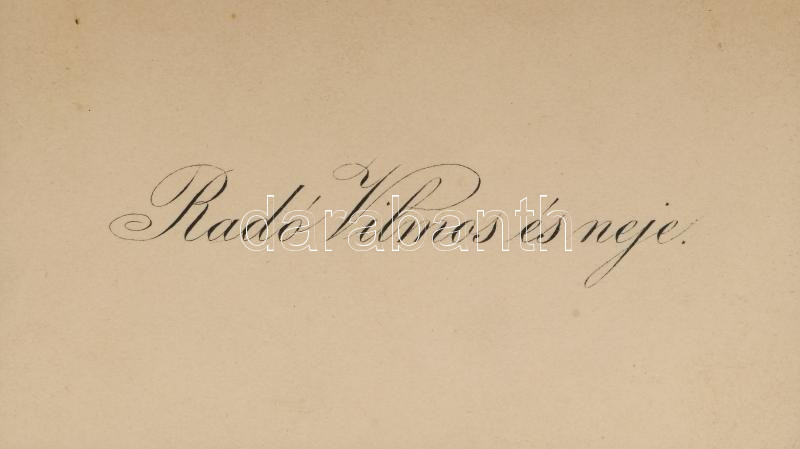 Radó Vilmos és neje.
darabanth